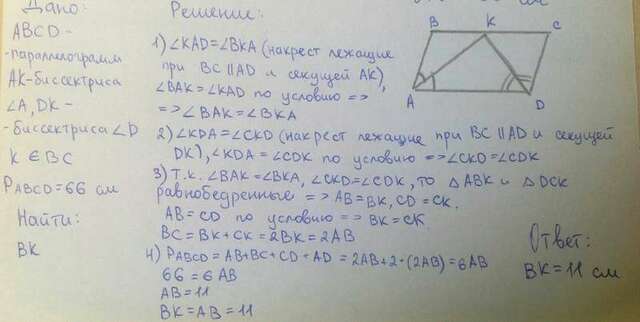 Дано:
ABCD -
- параллелограмм
AK-биссектриса
∠A, DK -
- биссектриса ∠D
K ∈ BC
PABCD = 66 см
Найти:
BK
Решение:
1) ∠KAD = ∠BKA (накрест лежащие
при BC || AD и секущей AK),
∠BAK = ∠KAD по условию =>
=> ∠BAK = ∠BKA
2) ∠KDA = ∠CKD (накрест лежащие при BC || AD и секущей
DK), ∠KDA = ∠CDK по условию => ∠CKD = ∠CDK
3) Т.к. ∠BAK = ∠BKA, ∠CKD = ∠CDK, то △ABK и △DCK
равнобедренные => AB = BK, CD = CK.
AB = CD по условию => BK = CK.
BC = BK + CK = 2BK = 2AB
4) PABCD = AB + BC + CD + AD = 2AB + 2·(2AB) = 6AB
66 = 6AB
AB = 11
BK = AB = 11
B K C
A D
Ответ:
BK = 11 см